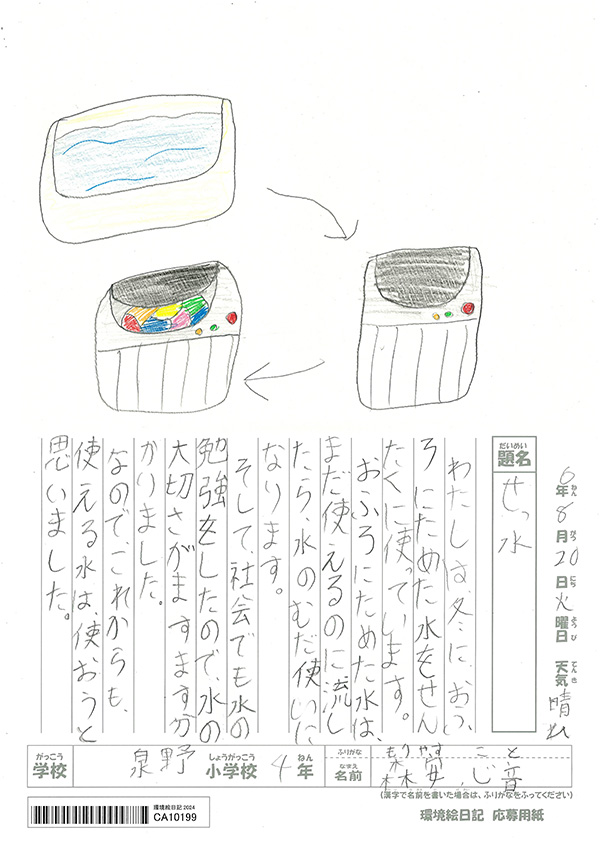 6年8月20日火曜日 天気晴れ
ねん がつ にち ようび てんき
だいめい
題名
せっ水
わたしは冬に、おふ
ろにためた水をせん
たくに使っています。
おふろにためた水は、
まだ使えるのに流し
たら、水のむだ使いに
なります。
そして、社会でも水の
勉強をしたので、水の
大切さがますます分
かりました。
なので、これからも、
使える水は、使おうと
思いました。
がっこう
学校
泉野
しょうがっこう
小学校
4
ねん
年
ふりがな
もりやす こと
なまえ
名前
森安 心音
(漢字で名前を書いた場合は、ふりがなをふってください)
環境絵日記 2024
CA10199
環境絵日記 応募用紙